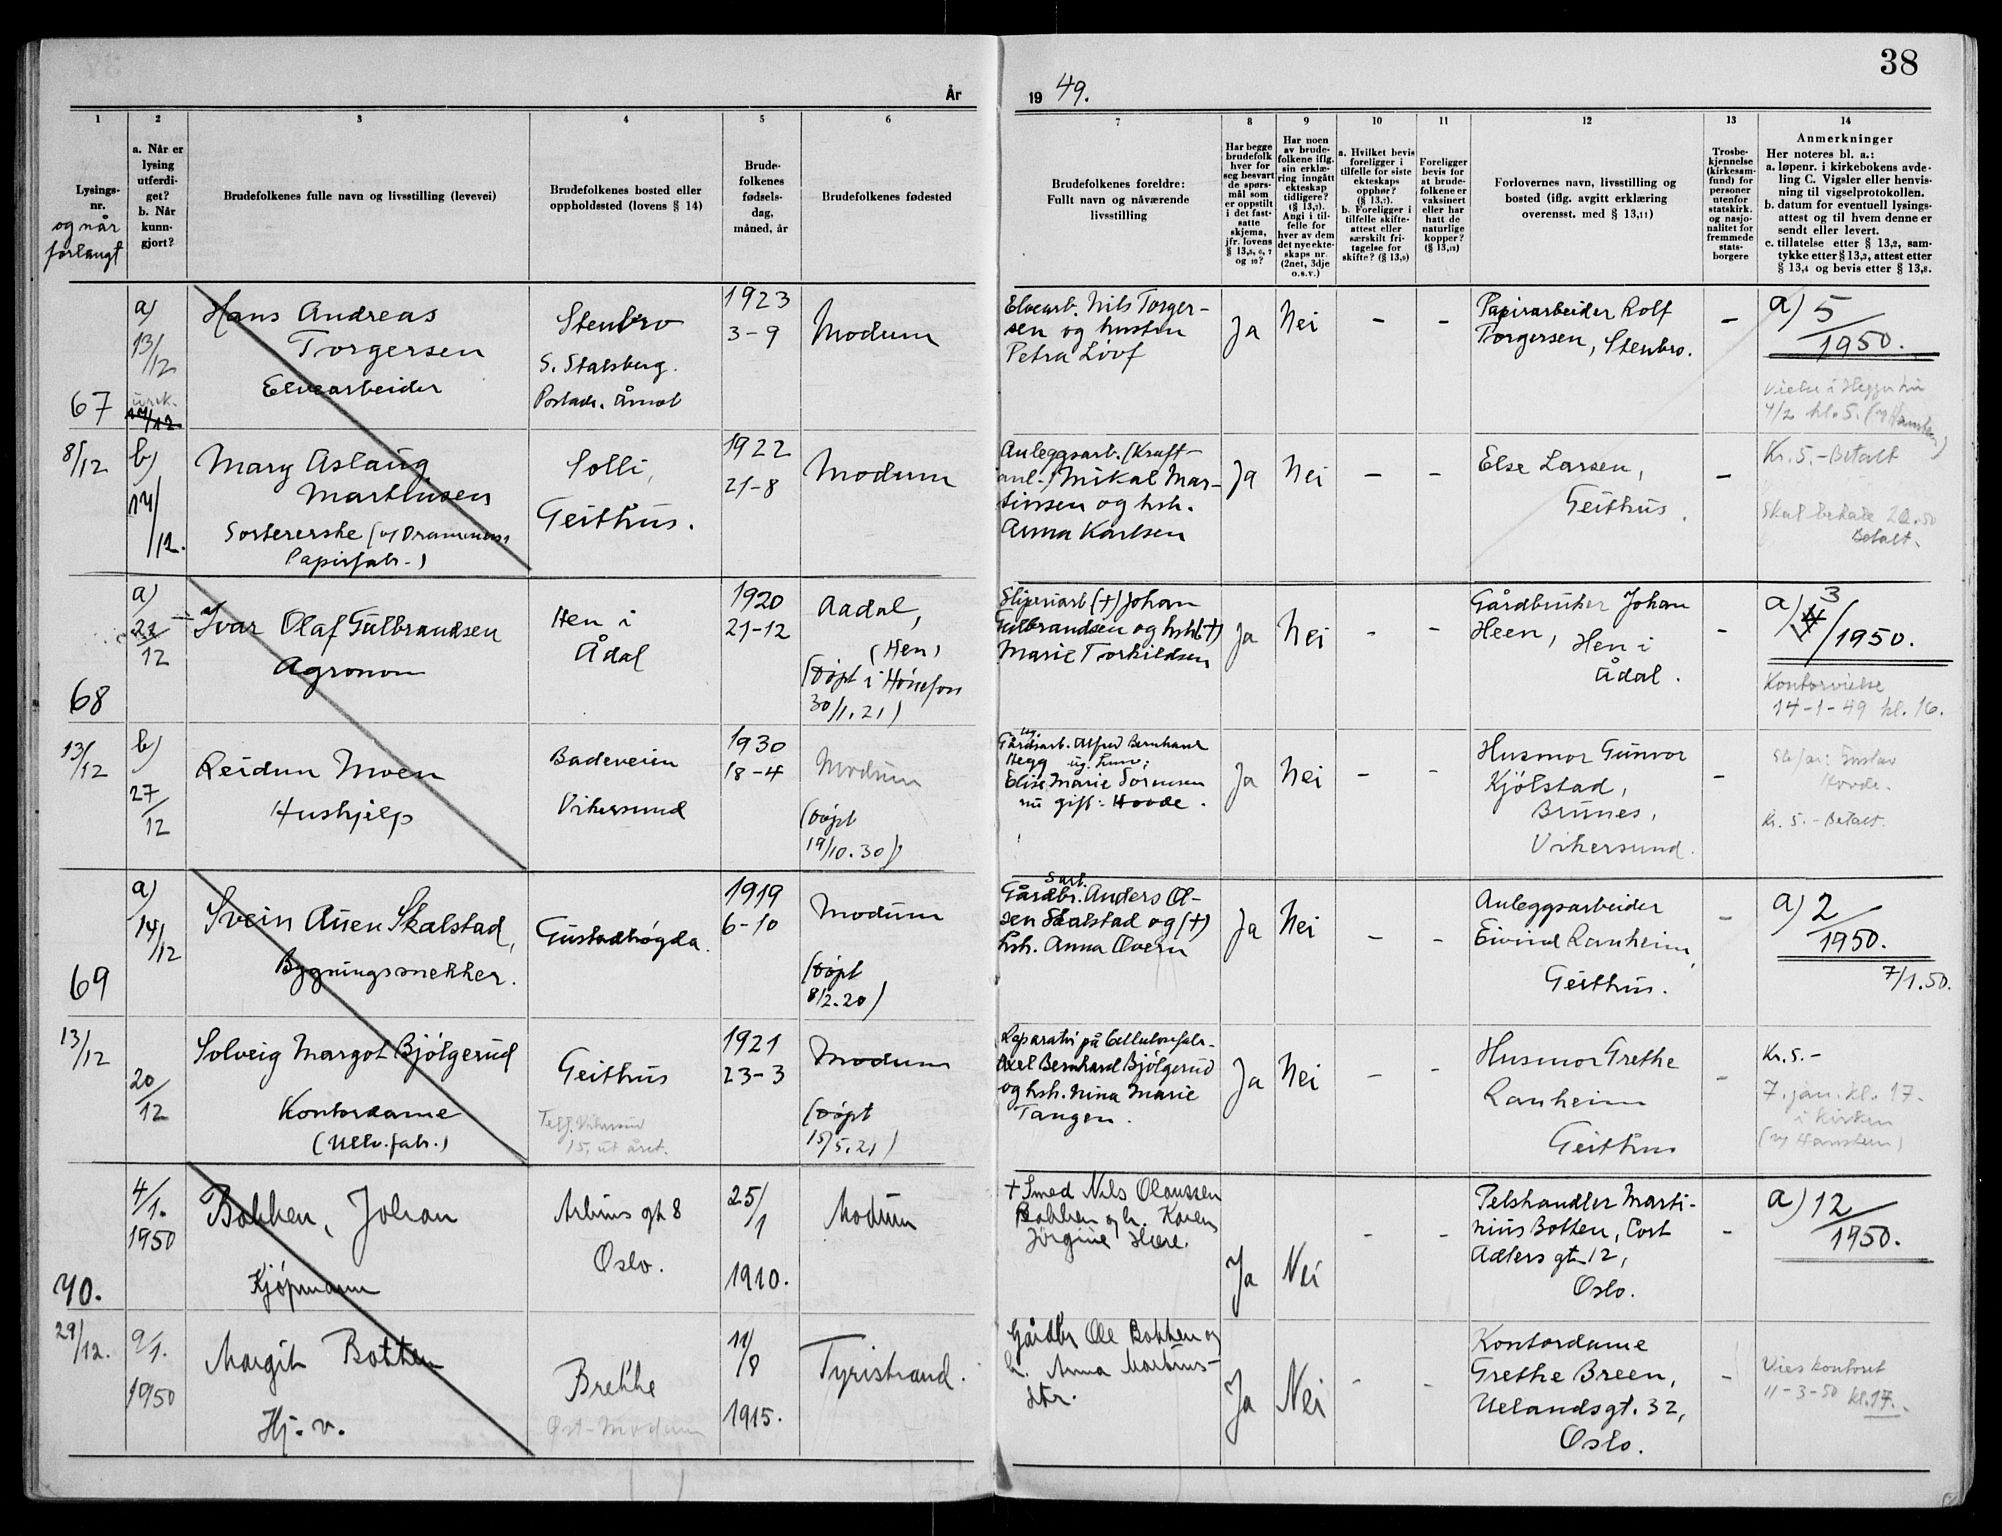 38
År
19 49.
1
2
3
4
5
6
7
8
9
10
11
12
13
14
Lysings-
nr.
og når
forlangt
a. Når er
lysing
utferdi-
get?
b. Når
kunn-
gjort?
Brudefolkenes fulle navn og livsstilling (levevei)
Brudefolkenes bosted eller
oppholdssted (lovens § 14)
Brude-
folkenes
fødsels-
dag,
måned, år
Brudefolkenes fødested
Brudefolkenes foreldre:
Fullt navn og nåværende
livsstilling
Har begge
brudefolk
hver for
seg besvart
de spørs-
mål som
er oppstilt
i det fast-
satte
skjema,
jfr. lovens
§ 13,5, 6, 7
og 10?
Har noen
av brude-
folkene iflg.
sin erklæ-
ring inngått
ekteskap
tidligere?
(§ 13,7).
Angi i til-
felle for
hver av dem
det nye ekte-
skaps nr.
(2net, 3dje
o.s.v.)
a. Hvilket bevis
foreligger i
tilfelle for siste
ekteskaps
opphør?
(§ 13,7).
b. Foreligger i
tilfelle skifte-
attest eller
særskilt fri-
tagelse for
skifte? (§ 13,9)
Foreligger
bevis for
at brude-
folkene er
vaksinert
eller har
hatt de
naturlige
kopper?
(§ 13,12)
Forlovernes navn, livsstilling og
bosted (iflg. avgitt erklæring
overensst. med § 13,11)
Trosbe-
kjennelse
(kirkesam-
fund) for
personer
utenfor
statskirk.
og nasjo-
nalitet for
fremmede
stats-
borgere
Anmerkninger
Her noteres bl. a.:
a. løpenr. i kirkebokens avde-
ling C. Vigsler eller henvis-
ning til vigselprotokollen.
b. datum for eventuell lysings-
attest og til hvem denne er
sendt eller levert.
c. tillatelse etter § 13,2, sam-
tykke etter § 13,3, attest etter
§ 13,4 og bevis etter § 13,8.
67
8/12
a)
13/12
b)
14/12.
Hans Andreas
Torgersen
Elvearbeider
Stenbro
S. Stalsberg.
Postadr. Åmot
1923
3-9
Modum
Elvearb. Nils Torger-
sen og hustru
Petra Lööf
Ja
Nei
-
-
Papirarbeider Rolf
Torgersen, Stenbro.
-
a) 5/1950.
4/2 kl. 5.
Mary Aslaug
Marthinsen
Sortererske (v/ Drammens
Papirfabr.)
Solli,
Geithus.
1922
21-8
Modum
Anleggsarb. (Kraft-
anl.) Mikal Mar-
tinsen og hsh.
Anna Karlsen
Ja
Nei
-
-
Else Larsen,
Geithus.
-
Kr. 5.- Betalt
Skal betale
Betalt.
68
13/12
a)
21/12
b)
27/12
Ivar Olaf Gulbrandsen
Agronom
Hen i
Ådal
1920
21-12
Aadal,
(Hen)
(döpt i Hönefoss
30/1.21)
Sliperiarb (+) Johan
Gulbrandsen og hsh (+)
Marie Torkildsen
Ja
Nei
-
-
Gårdbruker Johan
Heen, Hen i
Ådal.
-
a) 3/1950.
Kontorvielse
14-1-49 kl. 16.
Reidun Moen
Hushjelp
Badeveien
Vikersund
1930
18-4
Modum
(döpt
19/10.30)
ug.
Gårdsarb. Alfred Bernhard
Hegg
Elise Marie Sörensen
nu gift: Hovde.
Ja
Nei
-
-
Husmor Gunvor
Kjölstad,
Brunes,
Vikersund.
-
Stefar: Gustav
Hovde.
Kr. 5.- Betalt.
69
13/12
a)
14/12
20/12
Svein Auen Skalstad,
Bygningssnekker.
Gustadhøgda.
1919
6-10
Modum
(döpt
8/2.20)
Gårdbr. Anders Ol-
sen Skalstad og (+)
hsh. Anna Overn
Ja
Nei
-
-
Anleggsarbeider
Eivind Ranheim,
Geithus.
-
a) 2/1950.
7/1.50.
Solveig Margot Bjölgerud
Kontordame
Geithus
15, ut året.
1921
23-3
Modum
(döpt
15/5.21)
Reparatör på Cellulosefabr.
Axel Bernhard Bjölgerud
og hsh. Nina Marie
Tangen.
Ja
Nei
-
-
Husmor Grethe
Ranheim
Geithus
-
Kr. 5.-
7. jan. kl. 17.
i kirken
70.
29/12.
4/1.
1950
9/1.
1950
Botten, Johan
Kjöpmann
Arbins gt 8
Oslo.
25/1
1910.
Modum
+ Smed Nils Olaussen
Botten og h. Karen
Jörgine Hære.
Ja
Nei
-
-
Pelshandler Marti-
nius Botten, Cort
Adlers gt. 12,
Oslo.
-
a) 12/1950.
Margit Botten
Hj. v.
Brekke
Öst-Modum
11/8
1915.
Tyristrand.
Gårdbr Ole Botten og
h. Anna Martins-
dtr.
Ja
Nei
-
-
Kontordame
Grethe Breen,
Uelandsgt. 32,
Oslo.
-
Vies kontoret
11-3-50 kl. 17.